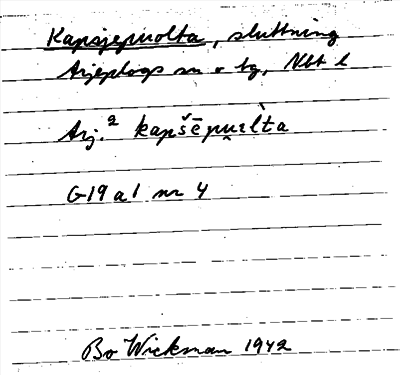 Kapsjepuolta, sluttning
Arjeplogs sn o tg, Nbt l
Arj.² kapšēpuɛ̮̀lta
G19 a 1 nr 4
Bo Wickman 1942